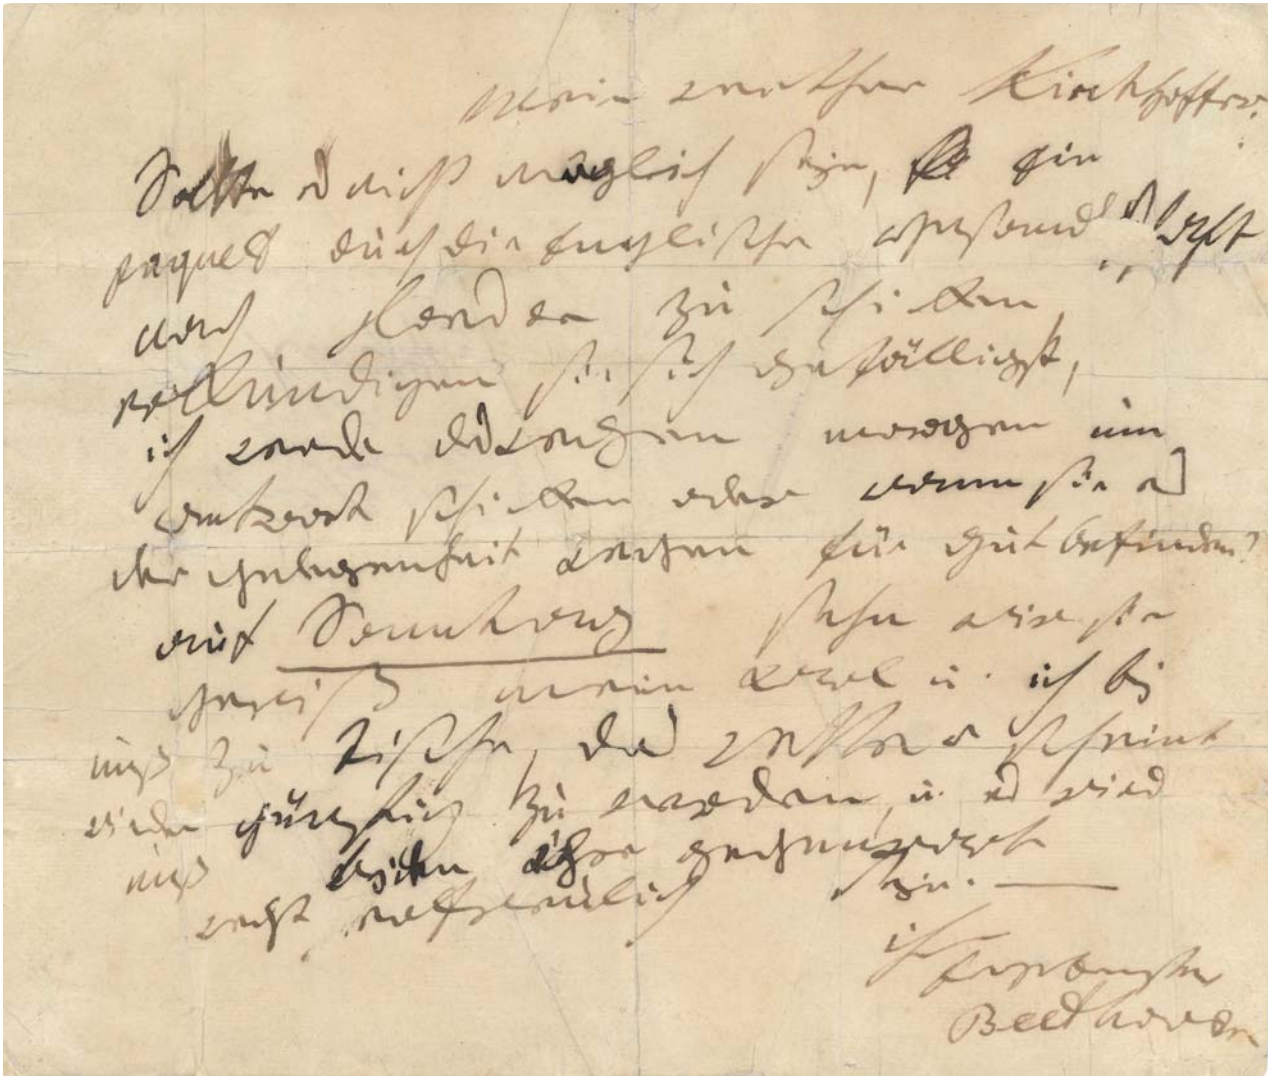 Mein werther Kirchhoffer.
Sollte es nicht möglich seyn, ein
paquet durch die Englische
nach London zu schicken,
erkundigen sie sich gefälligst,
ich werde deswegen morgen um
antwort schicken oder wann sie es
der gelegenheit wegen für gut befinden
auf Sonntag sehn wir sie
gewiß mein Karl u. ich bej
unß zu Tische, das wetter scheint
wieder günstig zu werden, u. es wird
unß bejden ihre gegenwart
recht erfreulich sejn. —
ihr Ergebenster
Beethoven